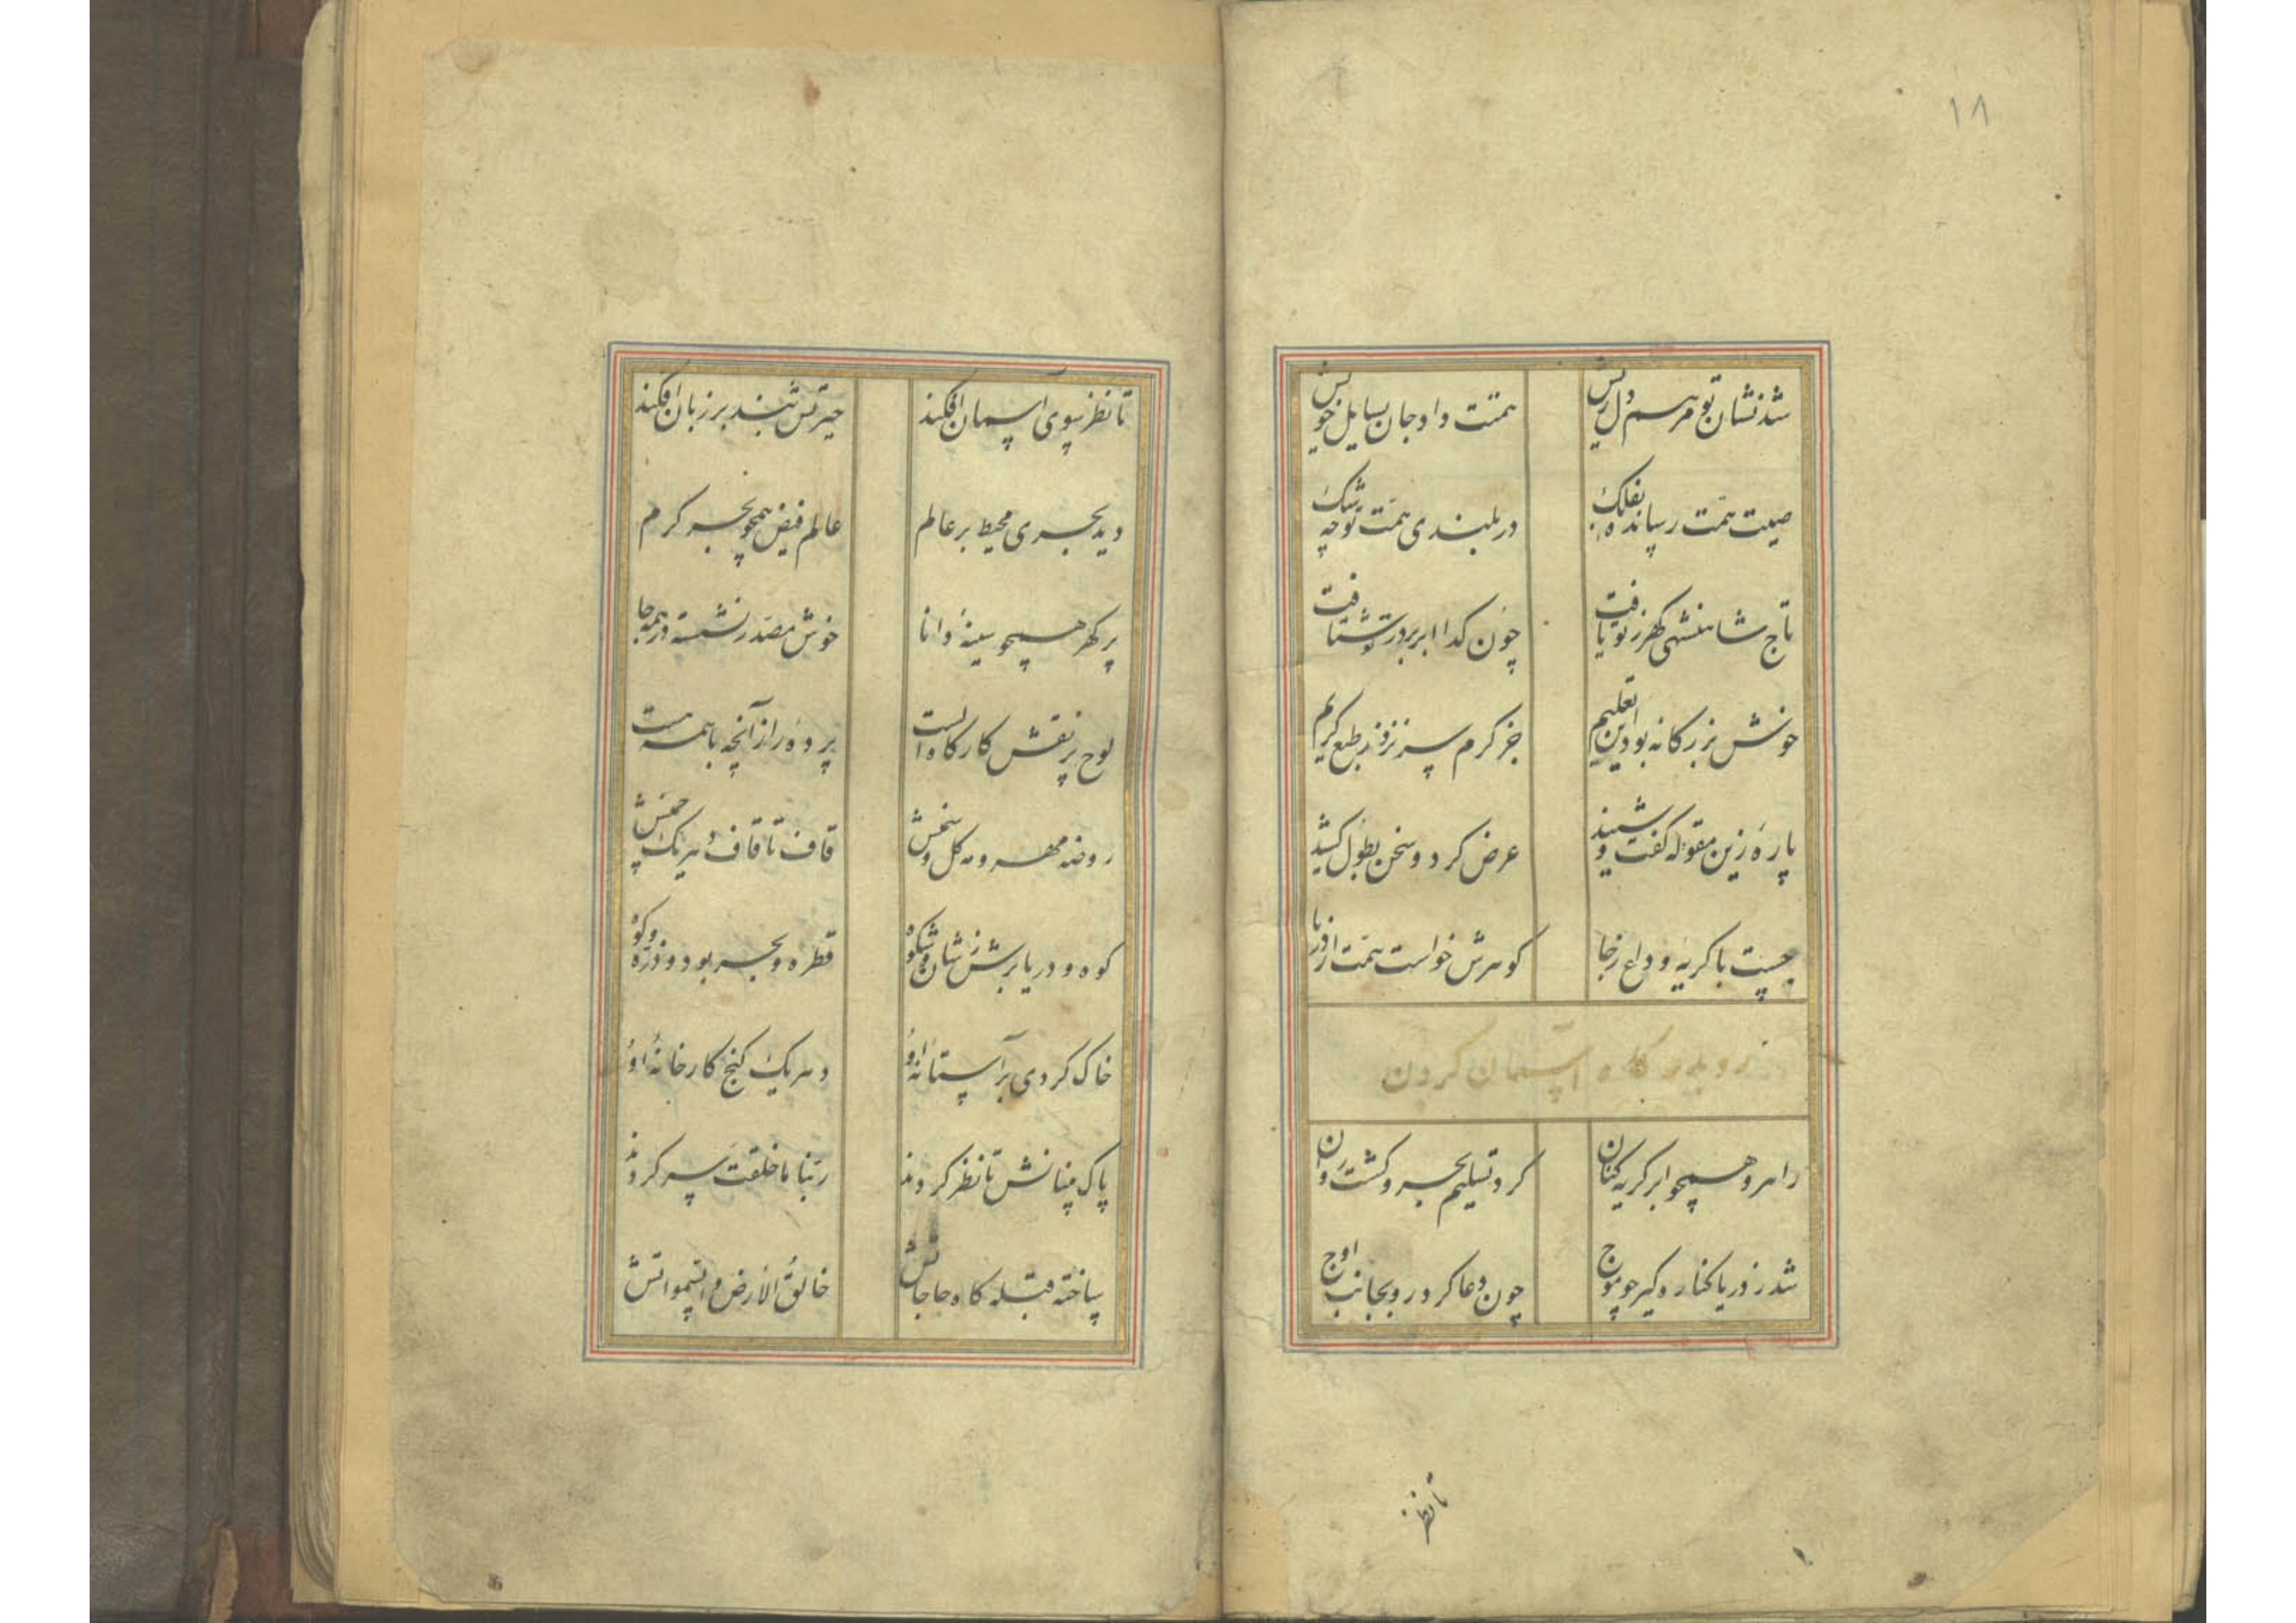 ۱۸
شد نشان تو مرهم دل ریش همتت داد جان بسایل خویش
صیت همت رسانده بفلک در بلندی همت تو چه شک
تاج شاهنشهی گهر ز تو یافت چون گدا ابر بر درت بشتافت
خوش بزرگانه بود این تعلیم جز کرم سر نزند ز طبع کریم
پاره زین مقوله گفت و شنید عرض کرد و سخن بطول کشید
جست با گریه و داع ز جا گوهرش خواست همت از دریا
رو بدرگاه آسمان کردن
راهرو همچو ابر گریه کنان کرد تسلیم بحر و گشت روان
شد ز دریا کناره گیر چو موج چون دعا کرد رو بجانب اوج
تا نظر
تا نظر سوی آسمان افکند حیرتش بند بر زبان افکند
دید بحری محیط بر عالم عالم فیض همچو بحر کرم
پر گهر همچو سینهٔ دانا خوش مصدر نشسته در همه جا
لوح پر نقش کارگاه الست پرده راز آنچه با همه هست
روضه مهر و مه گل و سمنش قاف تا قاف در یک چمنش
کوه و دریا برش ز شان و شکوه قطره و بحر بود و ذره و کوه
خاک گردی بر آستانه او دهر یک کنج کارخانهٔ او
پاک بینانش تا نظر کردند ربنا ما خلقت سر کردند
ساخته قبله گاه حاجاتش خالق الارض و السمواتش